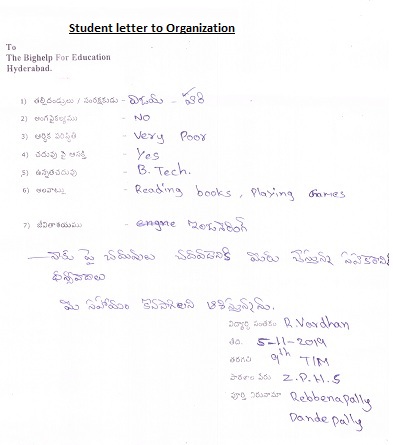 Student letter to Organization
To
The Bighelp For Education
Hyderabad.
1) తల్లిదండ్రులు / సంరక్షకుడు -
2) అంగవైకల్యము - NO
3) ఆర్థిక పరిస్థితి - Very Poor
4) చదువు పై ఆసక్తి - Yes
5) ఉన్నతచదువు - B. Tech.
6) అలవాట్లు - Reading books, Playing Games
7) జీవితాశయము -
నాకు పై చదువులు చదవడానికి మీరు చేస్తున్న
ధన్యవాదాలు
మీ సహాయం
విద్యార్థి సంతకం R. Vardhan
తేది. 5-11-2019
తరగతి 9th T/M
పాఠశాల పేరు Z.P.H.S
పూర్తి చిరునామా Rebbenapally
Dandepally